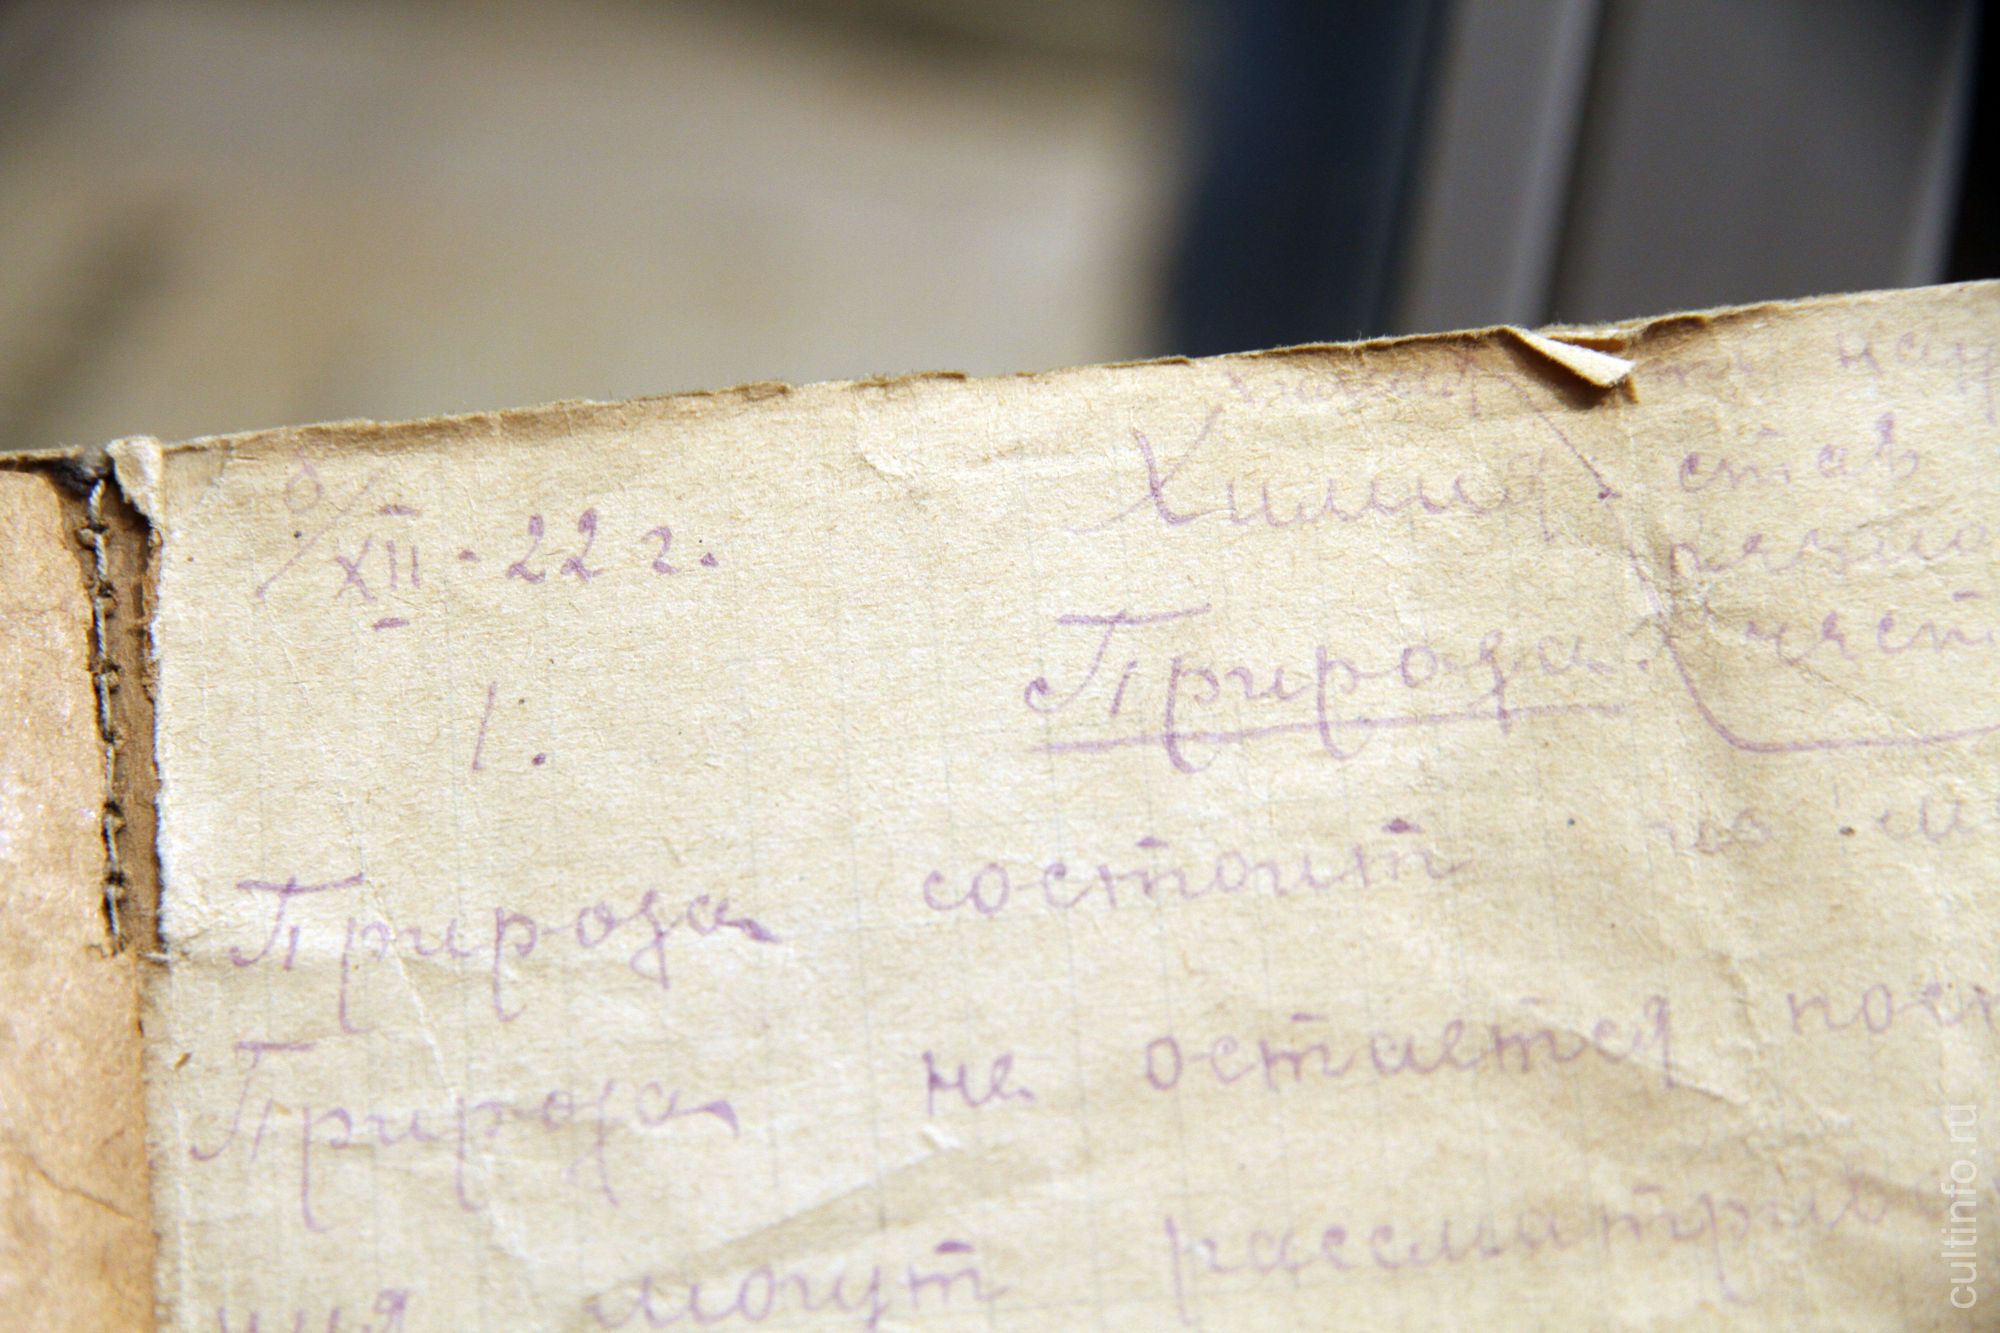 Химия
став
6/XII-22 г. Химия.
1. Природа.
Природа состоит из
Природа не остается
ния могут рассматрив
cultinfo.ru